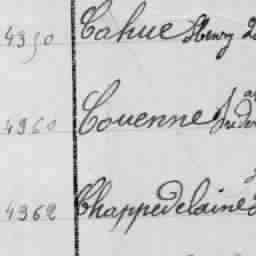 4950 Cahue Henry
4960 Couenne
4962 Chappedelaine